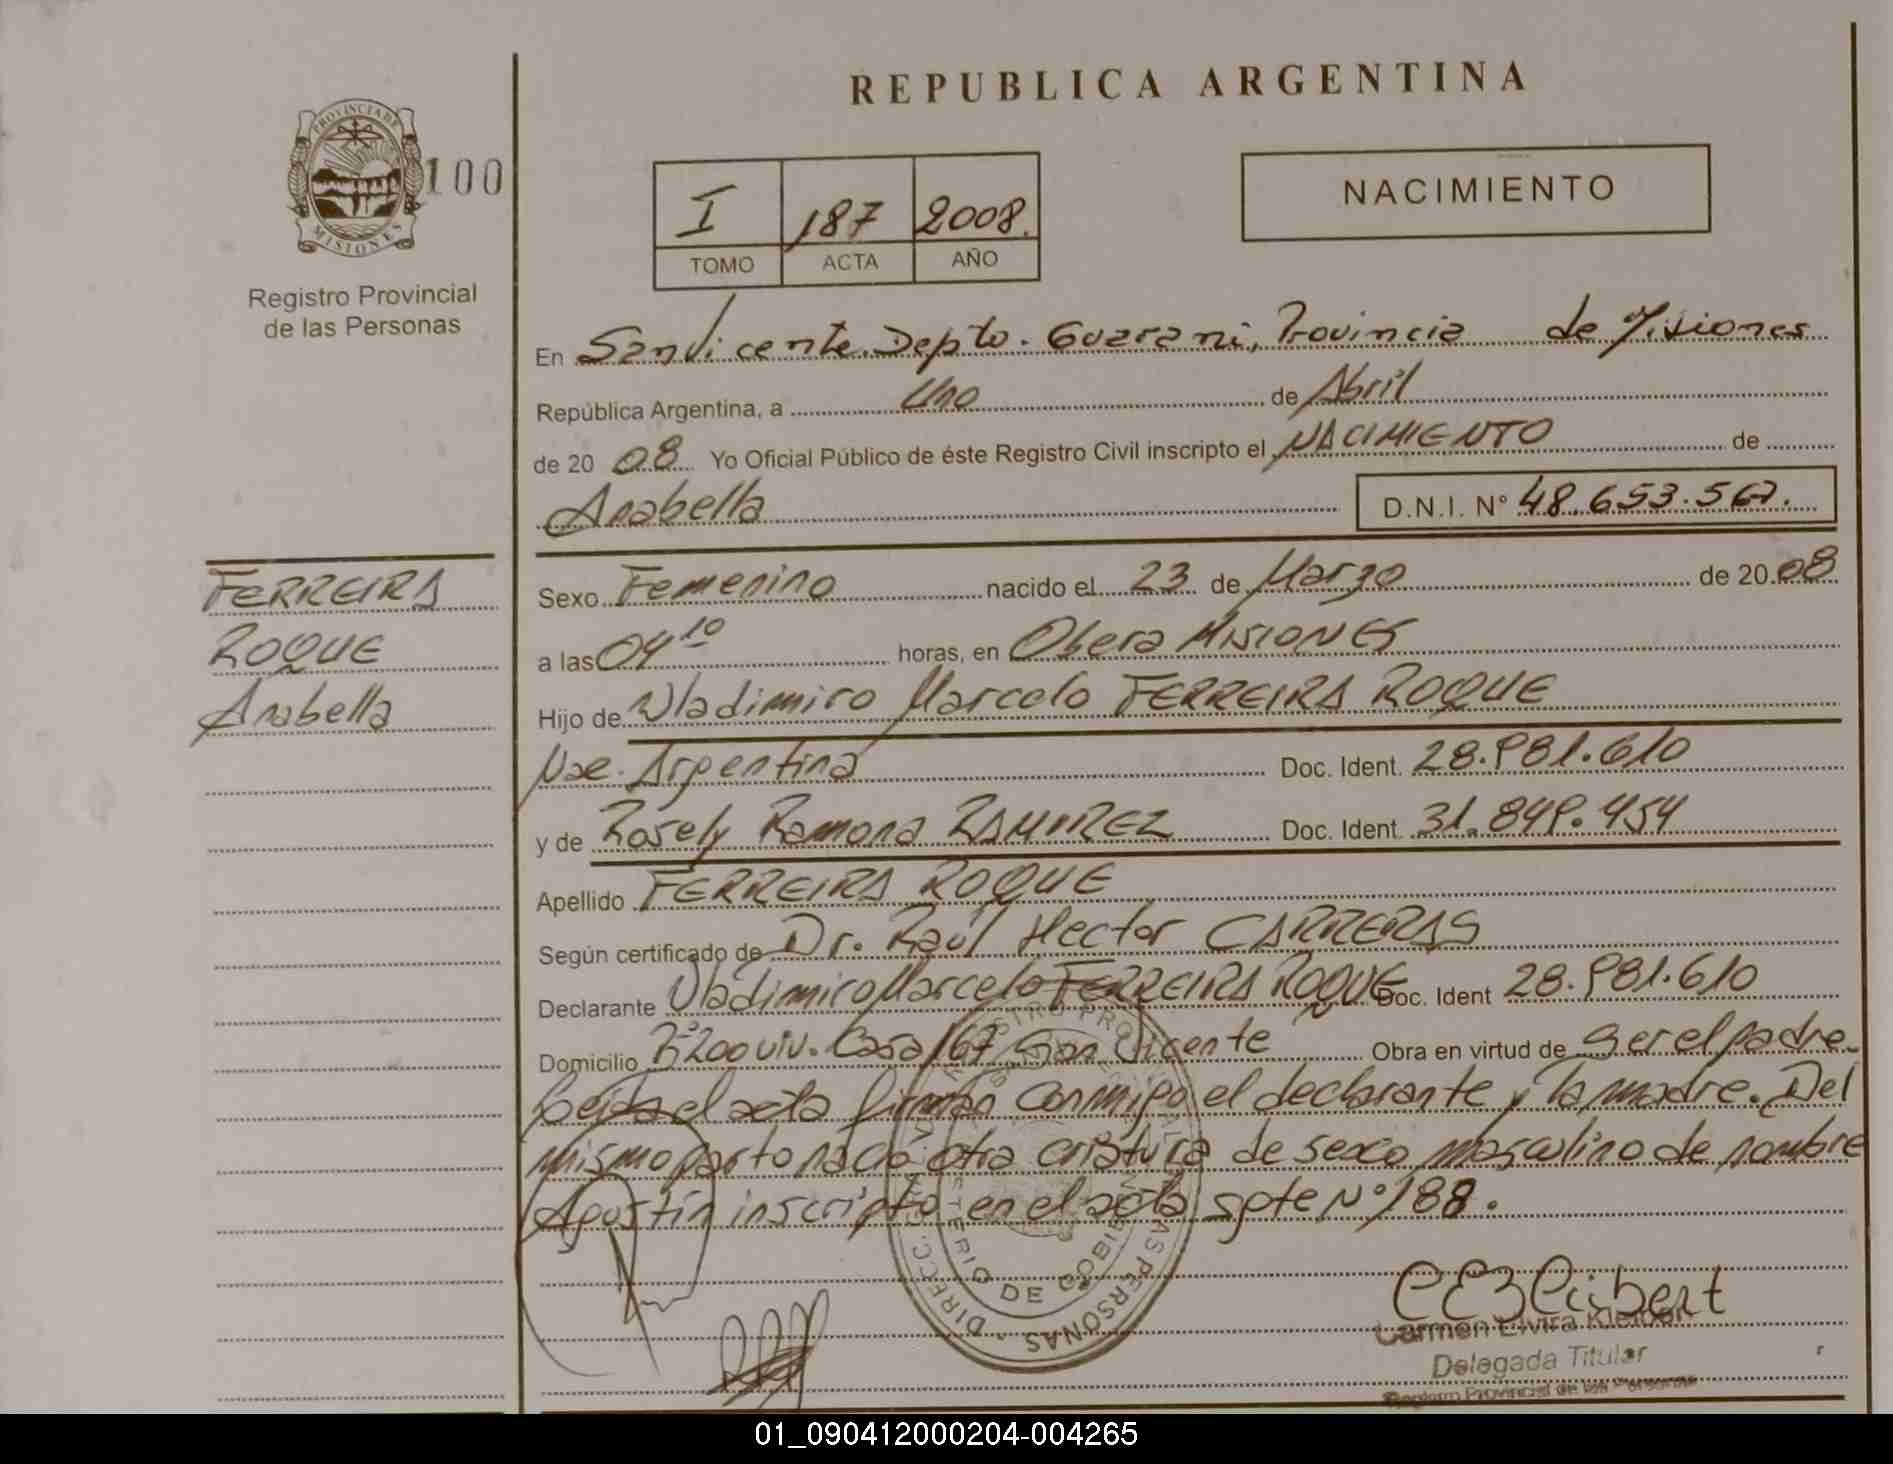 REPUBLICA ARGENTINA
PROVINCIA DE
MISIONES
100
Registro Provincial
de las Personas
I 187 2008.
TOMO ACTA AÑO
NACIMIENTO
En San Vicente. Depto. Guarani, Provincia de Misiones
República Argentina, a Uno de Abril
de 20 08 Yo Oficial Público de éste Registro Civil inscripto el NACIMIENTO de
Anabella
D.N.I. N° 48.653.567.
FERREIRA
ROQUE
Anabella
Sexo Femenino nacido el 23 de Marzo de 20 08
a las 04 10 horas, en Obera MISIONES
Hijo de Wladimiro Marcelo FERREIRA ROQUE
Nac. Argentina Doc. Ident. 28.981.610
y de Rosely Ramona RAMIREZ Doc. Ident 31.849.454
Apellido FERREIRA ROQUE
Según certificado de Dr. Raúl Hector CARRERAS
Declarante Wladimiro Marcelo FERREIRA ROQUE Doc. Ident 28.981.610
Domicilio B° 200 viv. Casa 167 San Vicente Obra en virtud de ser el padre.
el acta firman conmigo el declarante y la madre. Del
mismo parto nació otra criatura de sexo masculino de nombre
Agustín inscripto en el acta spte N° 188.
DE LAS PERSONAS - DIRECC.
DE
Carmen Elvira Kleibert
Delegada Titular
Registro Provincial de las Personas
01_090412000204-004265